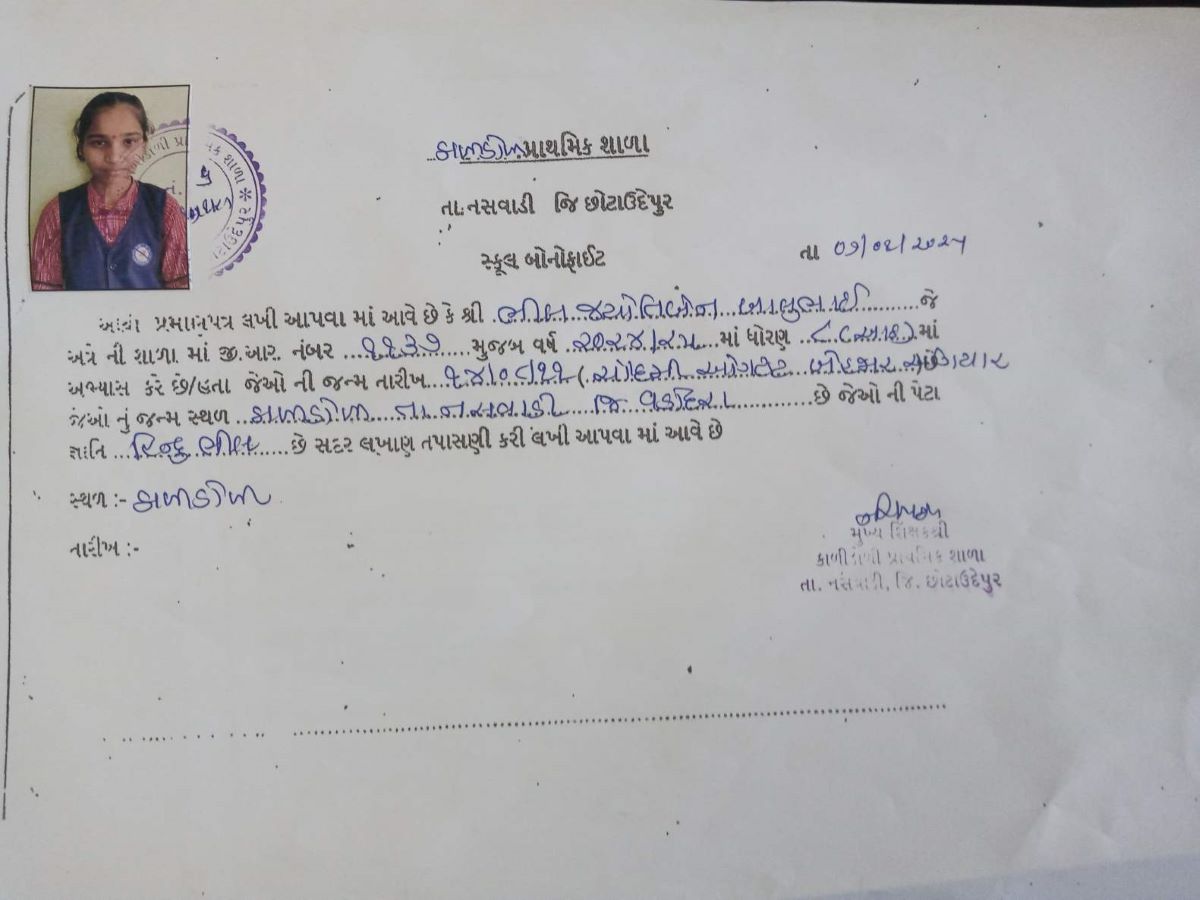 કાળીડોળી પ્રાથમિક શાળા
તા.નસવાડી જિ છોટાઉદેપુર
સ્કૂલ બોનોફાઈટ
તા ૦૭/૦૬/૨૦૨૫
પ્રમાણપત્ર લખી આપવા માં આવે છે કે શ્રી ભીલ જ્યોતિબેન બાલુભાઈ જે
અત્રે ની શાળા માં જી.આર. નંબર ૧૧૩૭ મુજબ વર્ષ ૨૦૨૪/૨૫ માં ધોરણ ૮ (આઠ) માં
અભ્યાસ કરે છે/હતા જેઓ ની જન્મ તારીખ ૧૪/૦૮/૧૧ (ચૌદમી ઓગષ્ટ બે હજાર અગિયાર
જેઓ નું જન્મ સ્થળ તા નસવાડી જિ વડોદરા છે જેઓ ની પેટા
જ્ઞાતિ હિન્દુ ભીલ છે સદર લખાણ તપાસણી કરી લખી આપવા માં આવે છે
સ્થળ :-
તારીખ :-
મુખ્ય શિક્ષકશ્રી
કાળીડોળી પ્રાથમિક શાળા
તા. નસવાડી, જિ. છોટાઉદેપુર